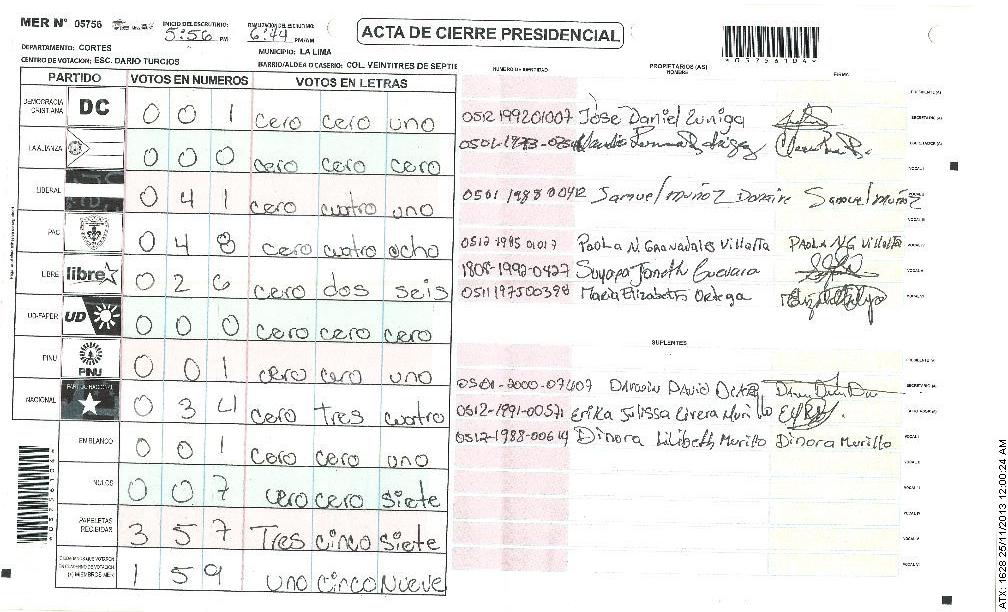 MER N° 05756
INICIO DEL ESCRUTINIO: 5:56 PM
6:44 PM/AM
ACTA DE CIERRE PRESIDENCIAL
*05756104*
DEPARTAMENTO: CORTES
MUNICIPIO: LA LIMA
CENTRO DE VOTACION: ESC. DARIO TURCIOS
BARRIO/ALDEA O CASERIO: COL. VEINTITRES DE SEPTIE
PARTIDO VOTOS EN NUMEROS VOTOS EN LETRAS
NUMERO DE IDENTIDAD PROPIETARIOS (AS) NOMBRE FIRMA
DEMOCRACIA CRISTIANA DC 0 0 1 cero cero uno
LA ALIANZA 0 0 0 cero cero cero
LIBERAL 0 4 1 cero cuatro uno
PAC 0 4 8 cero cuatro ocho
LIBRE libre 0 2 6 cero dos seis
UD-FAPER UD 0 0 0 cero cero cero
PINU PINU 0 0 1 cero cero uno
NACIONAL PARTIDO NACIONAL 0 3 4 cero tres cuatro
EN BLANCO 0 0 1 cero cero uno
NULOS 0 0 7 cero cero siete
PAPELETAS RECIBIDAS 3 5 7 Tres cinco siete
1 5 9 uno cinco nueve
0512 199201007 Jose Daniel Zuniga
0501 1988 00412 Samuel Muñoz Samuel Muñoz
0512 1995 01017 Paola N. Granadoles Villalta Paola NG Villalta
1808-1992-0427 Suyapa Janeth Guevara
0511197500398 Maria Elizabeth Ortega
SUPLENTES
David
0512-1991-00571 Erika Julissa Rivera Murillo
0512-1988-00614 Dinora Lilibeth Murillo Dinora Murillo
ATX: 1628 25/11/2013 12:00:24 AM